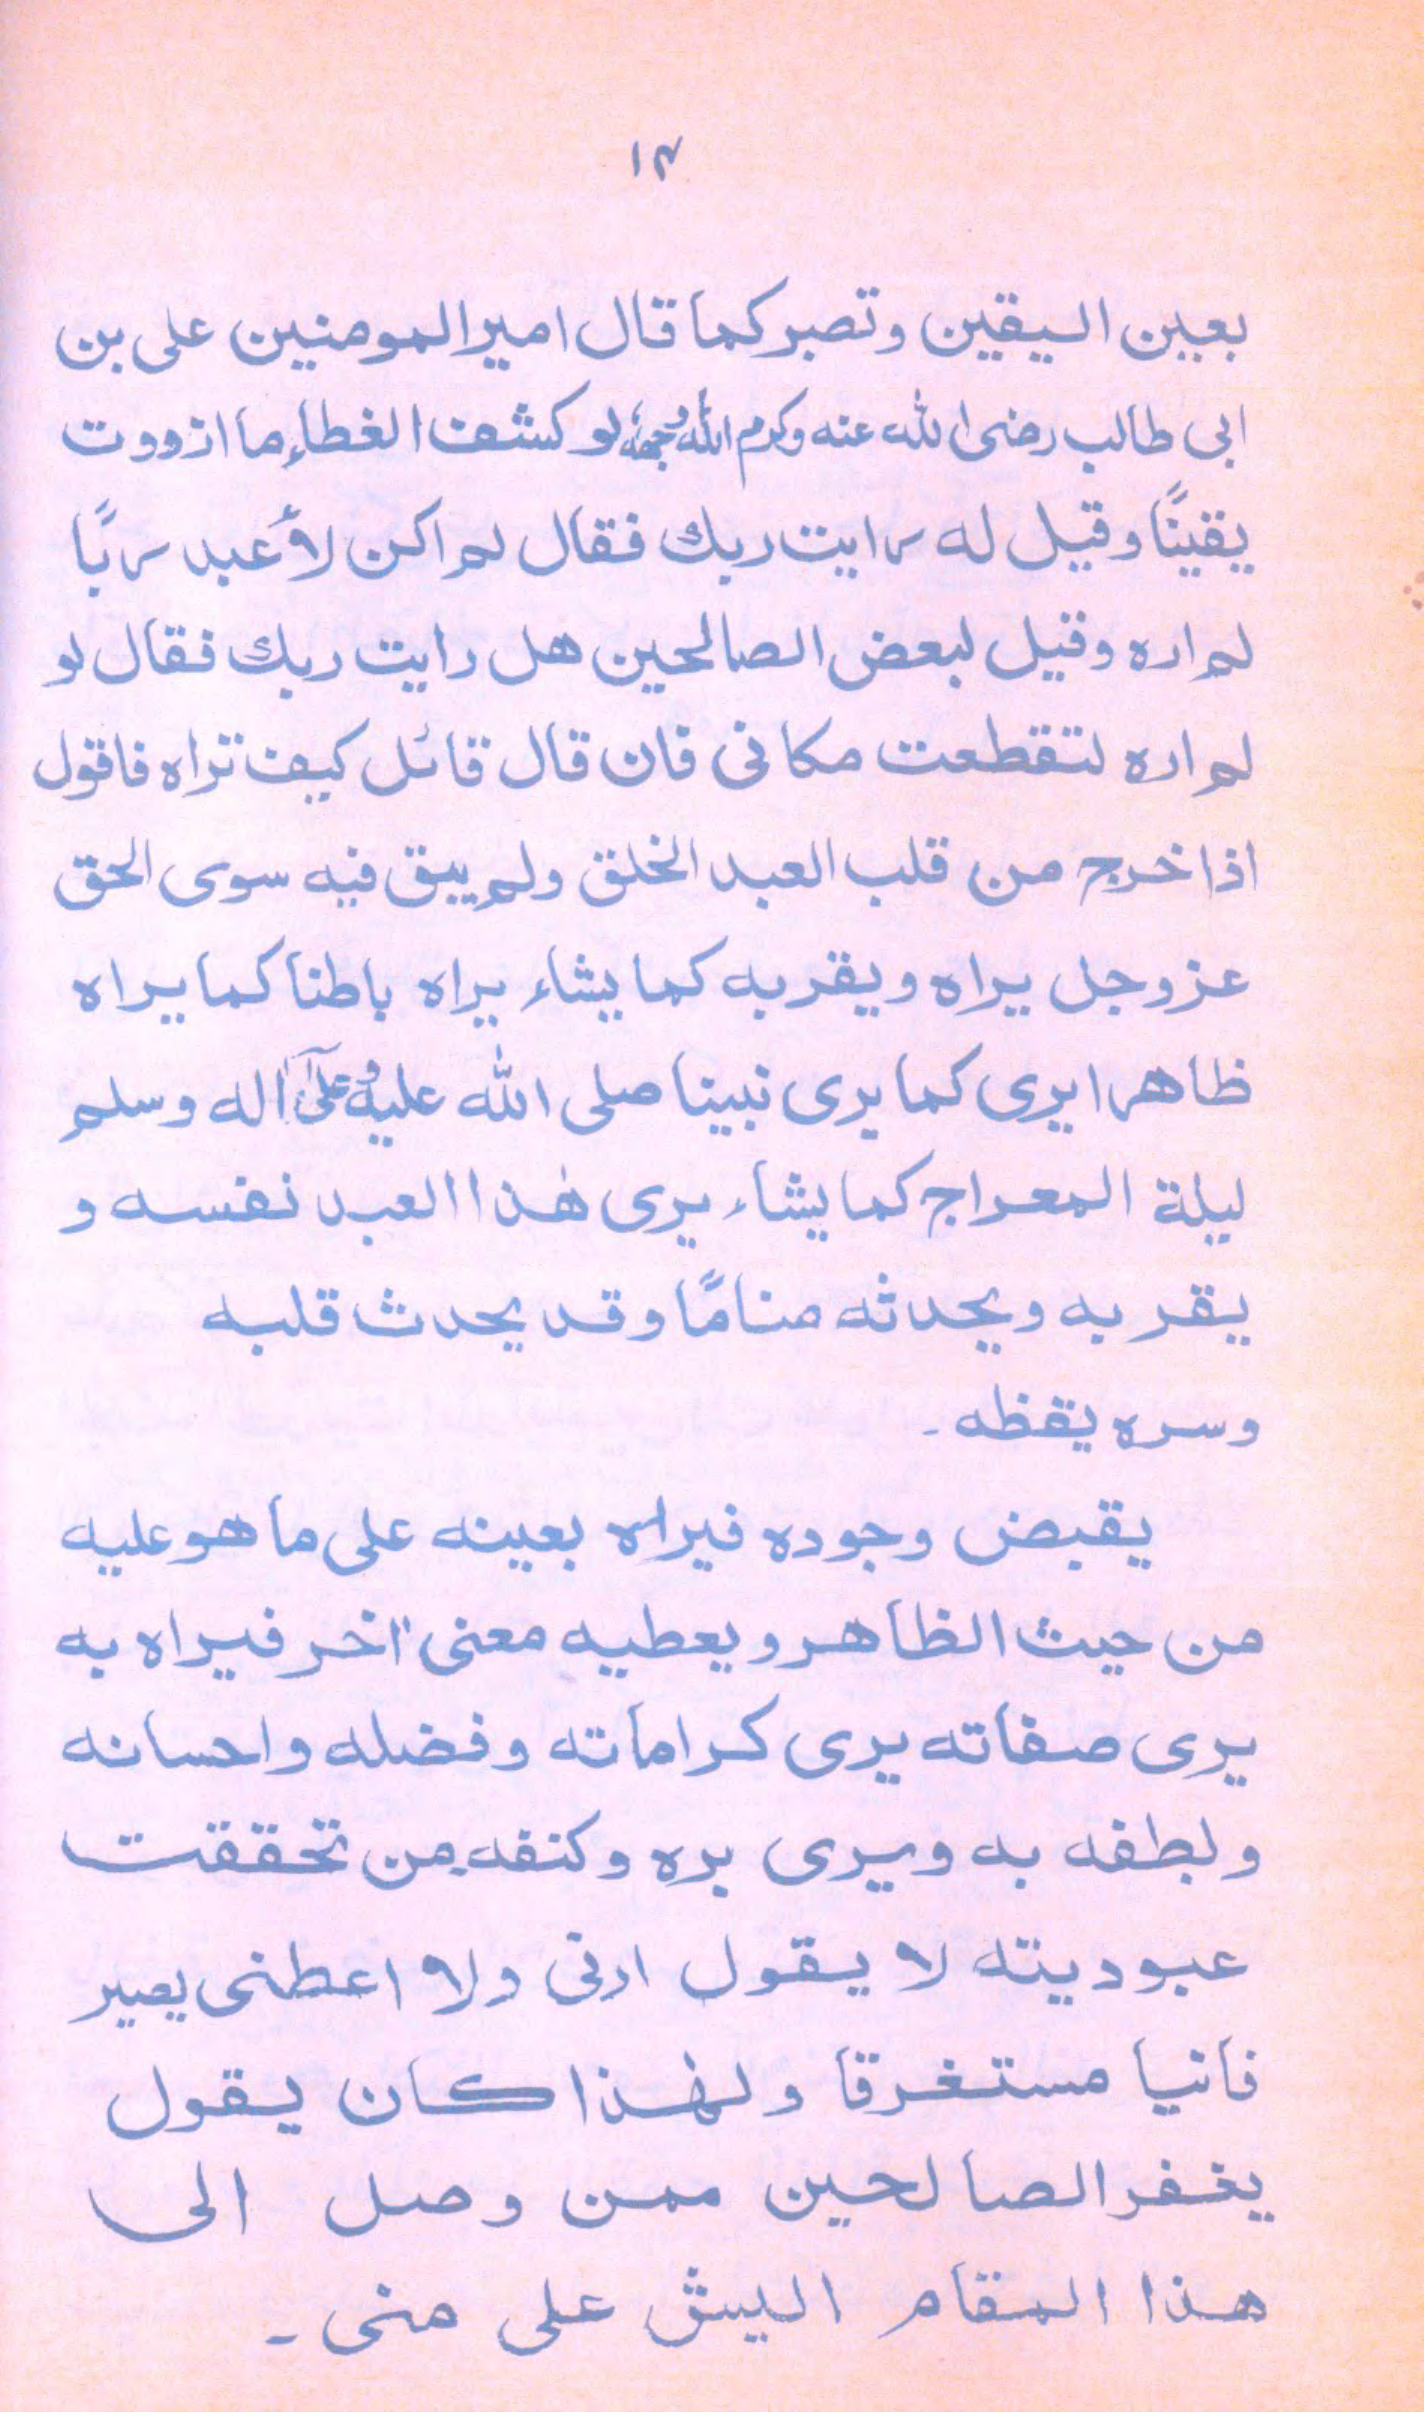 ١٣
بعين اليقين وتصبر كما قال امير المومنين على بن
ابى طالب رضى الله عنه وكرم الله وجهه لو كشف الغطاء ما ازووت
يقينًا وقيل له رايت ربك فقال لم اكن لأعبد ربًا
لم اره وقيل لبعض الصالحين هل رايت ربك فقال لو
لم اره لتقطعت مكانى فان قال قائل كيف تراه فاقول
اذا خرج من قلب العبد الخلق ولم يبق فيه سوى الحق
عز وجل يراه ويقربه كما يشاء يراه باطنا كما يراه
ظاهرا يرى كما يرى نبينا صلى الله عليه وعلىٰ اله وسلم
ليلة المعراج كما يشاء يرى هٰذا العبد نفسه و
يقربه ويحدثه منامًا وقد يحدث قلبه
وسره يقظه ۔
يقبض وجوده فيراه بعينه على ما هو عليه
من حيث الظاهر ويعطيه معنى اٰخر فيراه به
يرى صفاته يرى كراماته وفضله واحسانه
ولطفه به ويرى بره وكنفه من تحققت
عبوديته لا يقول ارنى ولا اعطنى يصير
فانيا مستغرقا ولهٰذا كان يقول
يغفر الصالحين ممن وصل الى
هذا المقام اليش على منى ۔